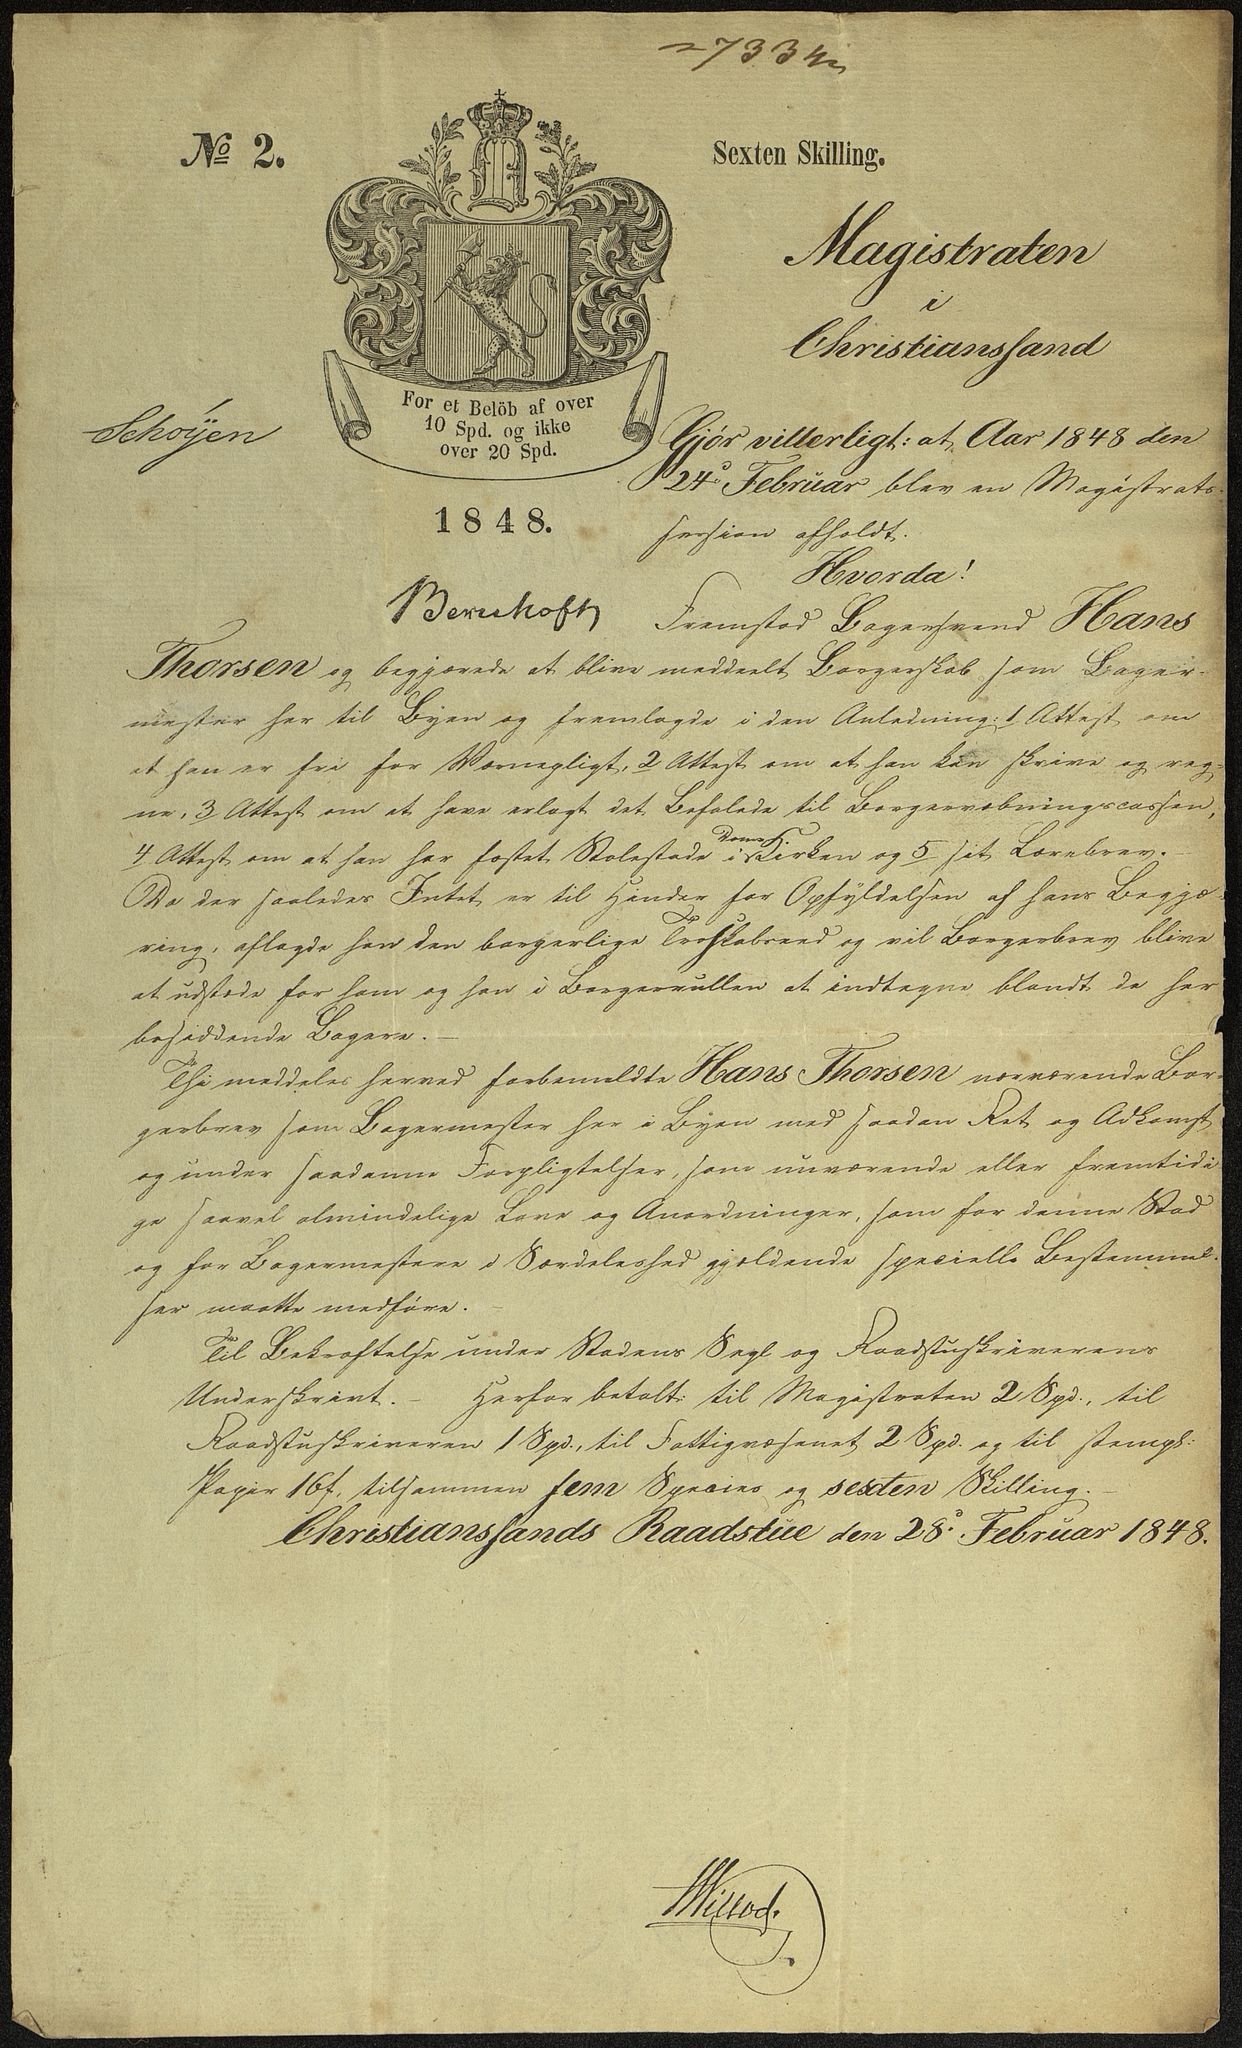 27334
No 2.
Sexten Skilling.
Magistraten
i
Christianssand
For et Belöb af over
10 Spd. og ikke
over 20 Spd.
1848.
Schøyen
Gjør vitterligt: at Aar 1848 den
24d Februar blev en Magistrats-
session afholdt.
Hvorda!
Fremstod Bagersvend Hans
Thorsen og begjærede at blive meddeelt Borgerskab som Bager-
mester her til Byen og fremlagde i den Anledning: 1 Attest om
at han er fri for Værnepligt, 2 Attest om at han kan skrive og reg-
ne, 3 Attest om at have erlagt det Befalede til Borgervæbningscassen,
4 Attest om at han har fæstet Stolestade i Domkirken og 5 sit Lærebrev.-
Da der saaledes Intet er til Hinder for Opfyldelsen af hans Begjæ-
ring, aflagde han den borgerlige Troskabseed og vil Borgerbrev blive
at udstæde for ham og han i Borgerrullen at indtegne blandt de her
besiddende Bagere.-
Thi meddeles herved forbemeldte Hans Thorsen nærværende Bor-
gerbrev som Bagermester her i Byen med saadan Ret og Adkomst
og under saadanne Forpligtelser, som nuværende eller fremtidi-
ge saavel almindelige Love og Anordninger, som for denne Stad
og for Bagermestere i Særdeleshed gjældende specielle Bestemmel-
ser maatte medføre.-
Til Bekræftelse under Stadens Segl og Raadstuskriverens
Underskrivt.- Herfor betalt: til Magistraten 2 Spd., til
Raadstuskriveren 1 Spd., til Fattigvæsenet 2 Spd. og til stempl:
Papir 16f, tilsammen fem Species og sexten Skilling.-
Christianssands Raadstue den 28d Februar 1848.